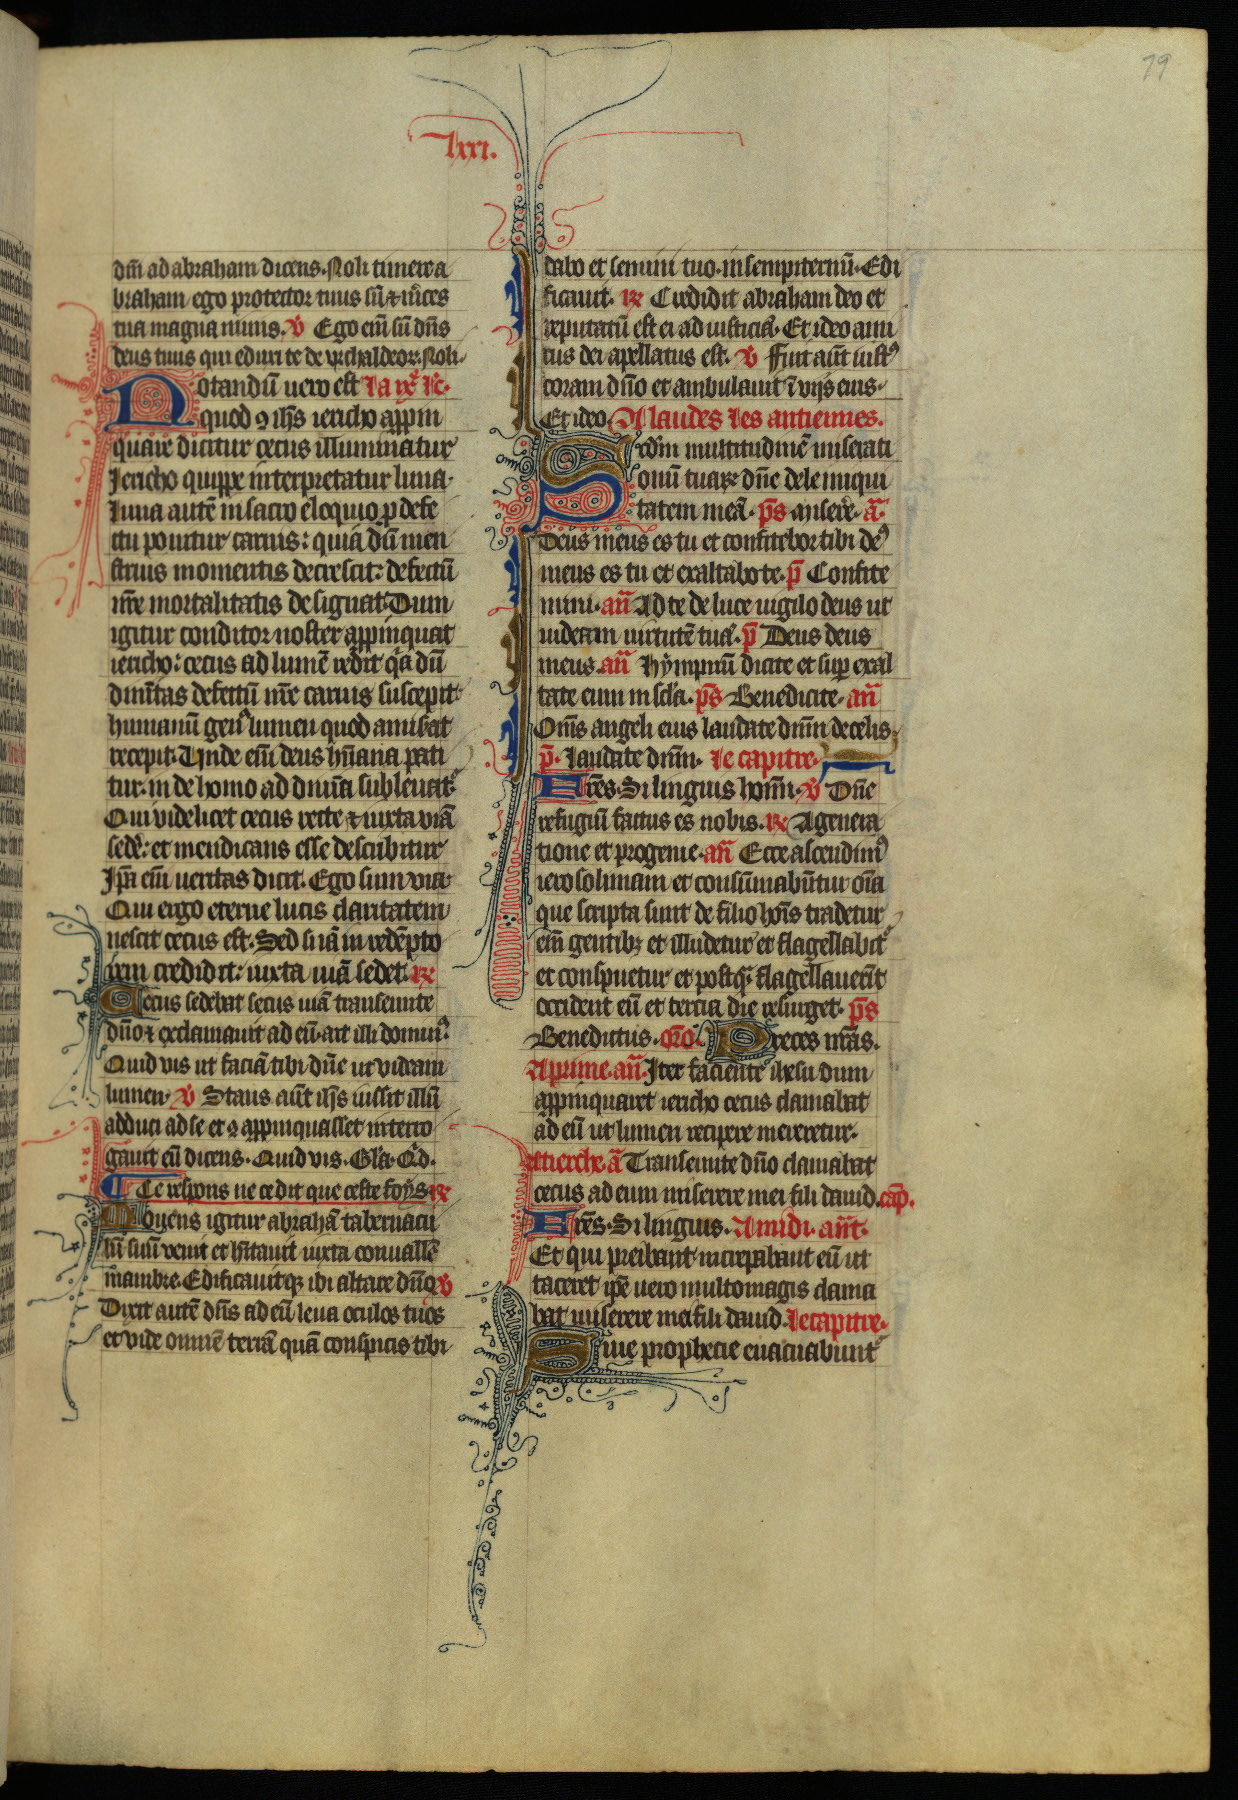 79
lxxi.
dm̄ ad abraham dicens. Noli timere a
braham ego protector tuus sū & m̄ces
tua magna nimis. V Ego eni̅ sū dn̄s
deus tuus qui eduxi te de vr chaldeoꝝ. Noli.
Notandū uero est la ixe. lc.
quod ꝯ ih̄s iericho appīn
quare dicitur cecus illuminatur
Jericho quippe interpretatur luna.
luna autē in sacro eloquio p̱ defe
ctu ponitur carnis: quia dū men
struis momentis decrescit: defectū
nr̄e mortalitatis designat. Dum
igitur conditor noster appinquat
iericho: cecus ad lumē redit q̄a dū
diuin̄tas defectū nr̄e carnis suscepit.
humanū genꝰ lumen quod amisat
recepit. Unde eni̅ deus hūana pati
tur. inde homo ad diuīa subleuatꝛ
Qui videlicet cecus recte & iuxta viā
sede: et mendicans esse describitur
Ip̄a eni̅ ueritas dicit. Ego sum via
Qui ergo eterne lucis claritatem
nescit cecus est. Sed si iā in redēpto
rem credidit: iuxta uiā sedet. ℞
Cecus sedebat secus uiā transeunte
dn̄o & exclamauit ad eū. ait illi dominꝰ.
Quid vis ut faciā tibi dn̄e ut videam
lumen. V Stans aūt ih̄s iussit illū
adduci ad se et ꝯ appinquasset interro
gauit eū dicens. Quid vis. Gl̄a. Qd̄.
Ce respons ne ce dit que ceste foys ℞
Mouens igitur abrahā tabernacu
lū suū venit et hītauit iuxta conuallē
mambre. Edificauitqꝫ ibi altare dn̄o. V
Dixit autē dn̄s ad eū leua oculos tuos
et vide omnē terrā quā conspicis tibi
dabo et semini tuo. in sempiternū. Edi
ficauit. ℞ Credidit abraham deo et
reputatū est ei ad iusticiā. Et ideo ami
cus dei apellatus est. V Fuit aūt iustꝰ
coram dn̄o et ambulauit ī viis eius.
Et ideo. A laudes les antiennes.
Scdm̄ multitudinē miserati
onū tuaꝝ dn̄e dele iniqui
tatem meā. ps̄ misere. ā
Deus meus es tu et confitebor tibi deꝰ
meus es tu et exaltabo te. p̄ Confite
mini. an̄ Ad te de luce uigilo deus ut
uideam uirtutē tuā. p̄ Deus deus
meus. an̄ Hympnū dicite et sup̱ exal
tate eum in scl̄a. ps̄ Benedicite. an̄
Om̄s angeli eius laudate dn̄m de celis.
p̄. laudate dn̄m. le capitre.
Fr̄es. Si linguis homn̄. V Dn̄e
refugiū factus es nobis. ℞ A genera
tione et progenie. an̄ Ecce ascendimꝰ
ierosolimam et consūmabūtur oīa
que scripta sunt de filio hoīs tradetur
em̄ gentibꝫ et illudetur et flagellabitꝛ
et conspuetur et postqꝫ flagellauerīt
occident eū et tercia die resurget. ps̄
Benedictus. or̄o. Preces nr̄as.
A prime. an̄. Iter faciente ihesu dum
appinquaret iericho cecus clamabat
ad eū ut lumen recipere mereretur.
A tierche. ā Transeunte dn̄o clamabat
cecus ad eum miserere mei fili dauid. cap̄.
Fr̄es. Si linguis. A midi. an̄t.
Et qui preibant increpabant eū ut
taceret ip̄e uero multo magis clama
bat miserere mei fili dauid. le capitre.
Siue prophecie euacuabuntꝛ